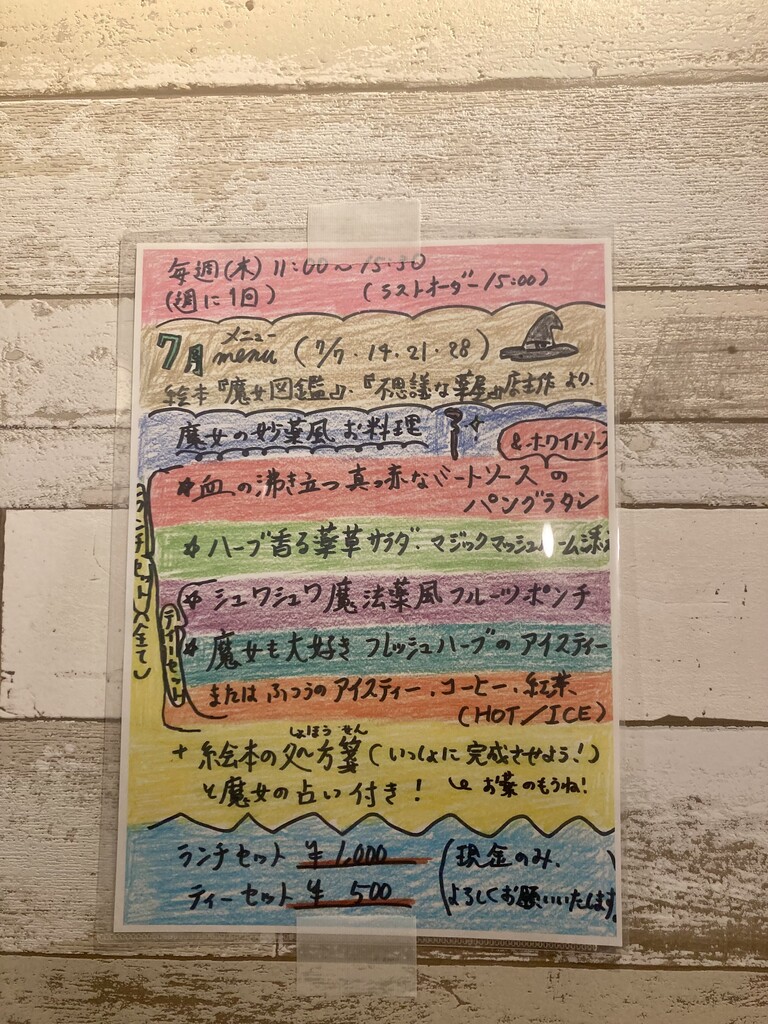 毎週(木) 11:00〜15:30
(週に1回) (ラストオーダー15:00)
メニュー
7月 menu (7/7.14.21.28)
絵本『魔女図鑑』、『不思議な薬屋』店主作 より、
魔女の妙薬風 お料理
&ホワイトソース
*血の沸き立つ真っ赤なミートソースの
パングラタン
*ハーブ香る薬草サラダ、マジックマッシュルーム添え
*シュワシュワ魔法薬風フルーツポンチ
*魔女も大好き フレッシュハーブのアイスティー
または ふつうのアイスティー、コーヒー、紅茶、
(HOT/ICE)
ランチセット(全て)
ティーセット
しょほうせん
+ 絵本の処方箋(いっしょに完成させよう!)
と魔女の占い付き! お薬のもうね!
ランチセット ¥1,000 (現金のみ、
ティーセット ¥ 500 よろしくお願いいたします。)